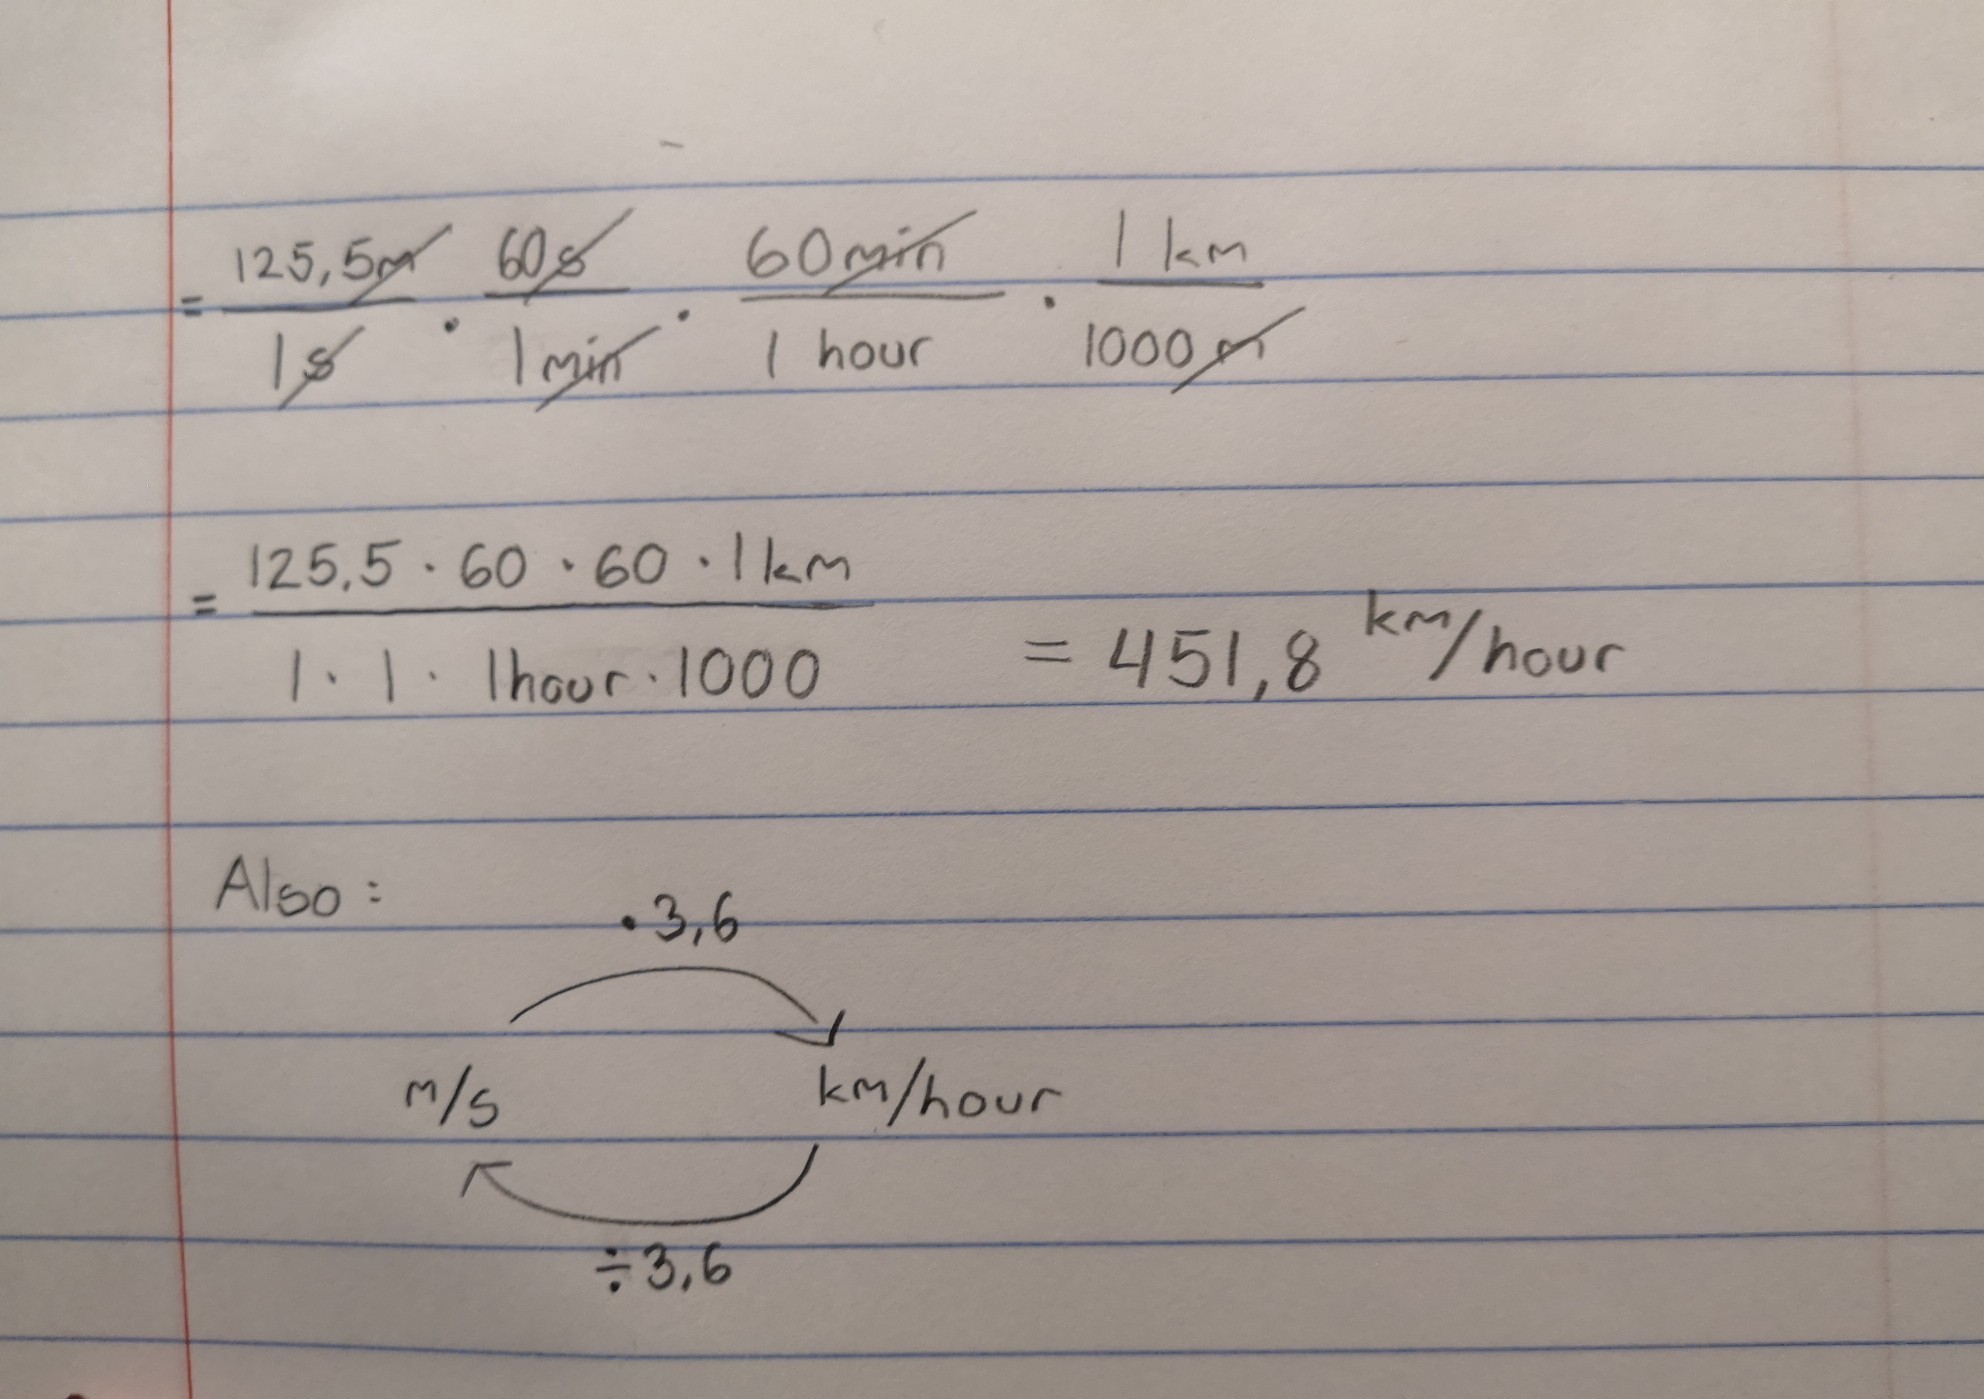 = 125,5m/1s · 60s/1min · 60min/1 hour · 1 km/1000m
= 125,5 · 60 · 60 · 1km / 1 · 1 · 1hour · 1000 = 451,8 km/hour
Also:
· 3,6
m/s km/hour
÷3,6